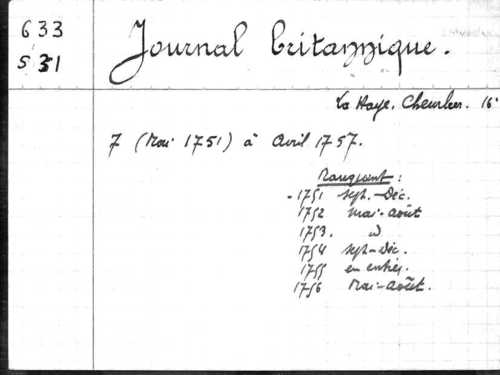 633
531
Journal britannique.
La Haye. Cheurleer. 16°
7 (Mai 1751) à Avril 1757.
Manquent :
- 1751 sept.-Déc.
1752 mai-août
1753. id
1754 sept-Déc.
1755 en entier.
1756 Mai-Août.